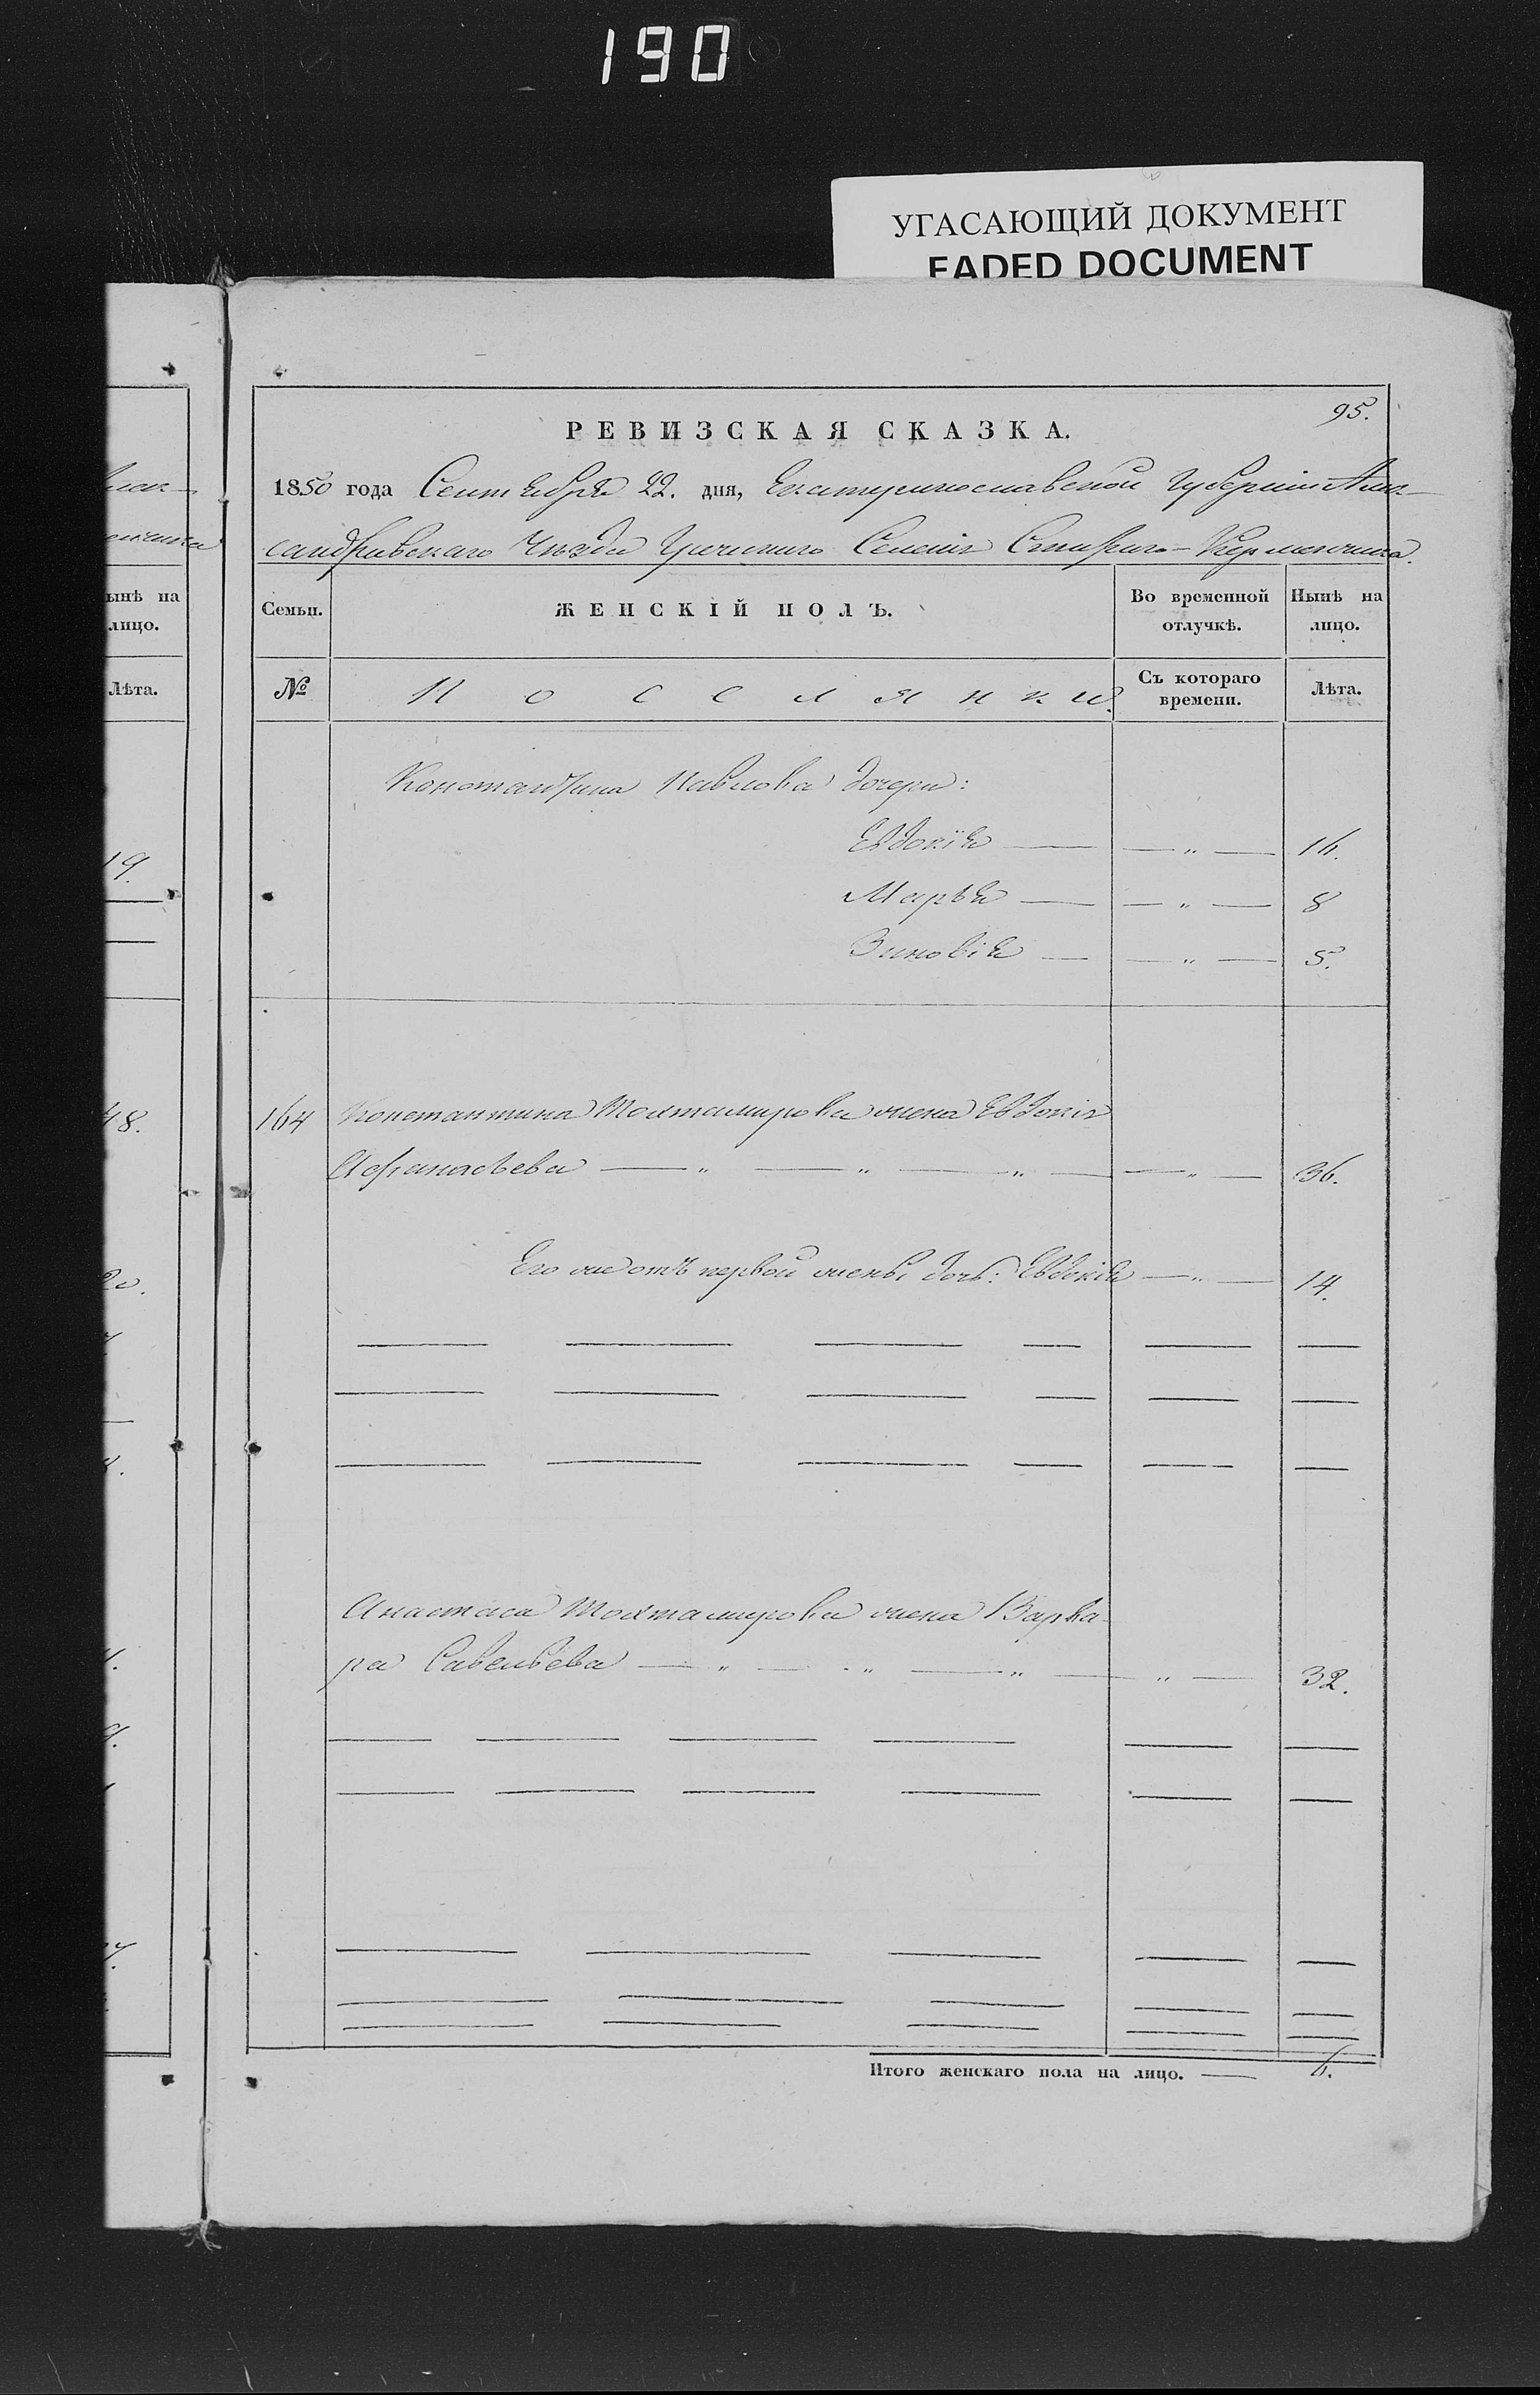 190
УГАСАЮЩИЙ ДОКУМЕНТ
FADED DOCUMENT
95.
РЕВИЗСКАЯ СКАЗКА.
1850 года Сентября 22. дня, Екатеринославской Губерніи Алек-
сандровскаго Уѣзда Греческаго Селенія Стараго-Керменчика.
ынѣ на
лицо.
Лѣта.
Семьи.
ЖЕНСКІЙ ПОЛЪ.
Во временной
отлучкѣ.
Нынѣ на
лицо.
№
Поселянки.
Съ котораго
времени.
Лѣта.
Константина Павлова дочери:
Евдокія — — „ — 16.
19.
Марья — — „ — 8
Зиновія — — „ — 5.
48.
164 Константина Тохтамирова жена Евдокія
Афанасьева — „ — „ — „ — — „ — 36.
Его же отъ первой жены дочь: Евдокія — „ — 14.
Анастаса Тохтамирова жена Варва-
ра Савельева — „ — „ — „ — „ — 32.
Итого женскаго пола на лицо. — 6.